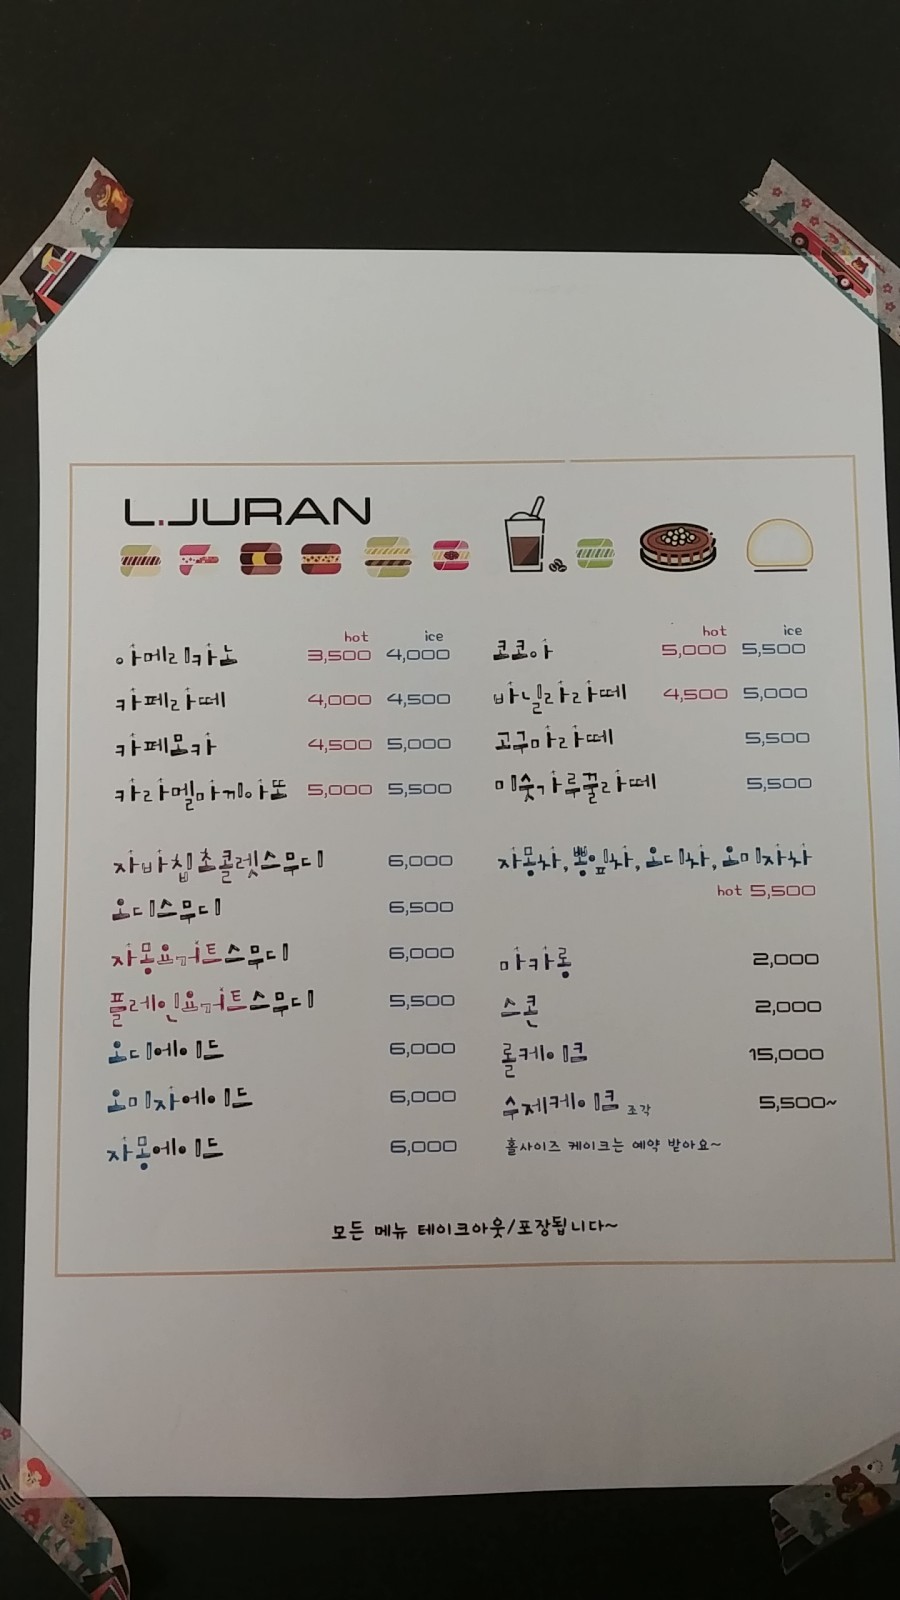 L.JURAN
hot ice
아메리카노 3,500 4,000
카페라떼 4,000 4,500
카페모카 4,500 5,000
카라멜마끼아또 5,000 5,500
자바칩초콜렛스무디 6,000
오디스무디 6,500
자몽요거트스무디 6,000
플레인요거트스무디 5,500
오디에이드 6,000
오미자에이드 6,000
자몽에이드 6,000
hot ice
코코아 5,000 5,500
바닐라라떼 4,500 5,000
고구마라떼 5,500
미숫가루꿀라떼 5,500
자몽차, 뽕잎차, 오디차, 오미자차
hot 5,500
마카롱 2,000
스콘 2,000
롤케이크 15,000
수제케이크 조각 5,500~
홀사이즈 케이크는 예약 받아요~
모든 메뉴 테이크아웃/포장됩니다~